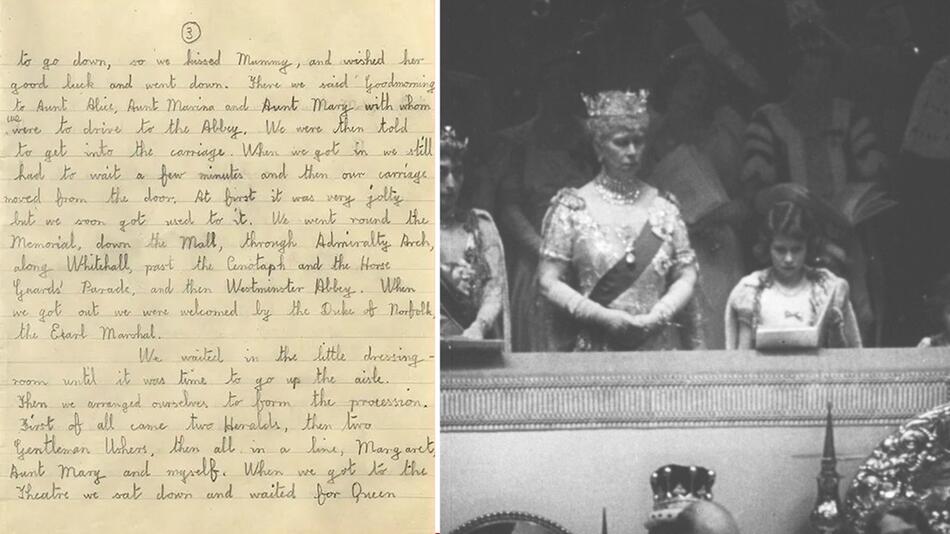 3
to go down, so we kissed Mummy, and wished her
good luck and went down. There we said Goodmorning
to Aunt Alice, Aunt Marina and Aunt Mary with whom
we
were to drive to the Abbey. We were then told
to get into the carriage. When we got in we still
had to wait a few minutes and then our carriage
moved from the door. At first it was very jolty
but we soon got used to it. We went round the
Memorial, down the Mall, through Admiralty Arch,
along Whitehall, past the Cenotaph and the Horse
Guards' Parade, and then Westminster Abbey. When
we got out we were welcomed by the Duke of Norfolk,
the Earl Marshal.
We waited in the little dressing-
room until it was time to go up the aisle.
Then we arranged ourselves to form the procession.
First of all came two Heralds, then two
Gentleman Ushers, then all in a line, Margaret,
Aunt Mary and myself. When we got to the
Theatre we sat down and waited for Queen